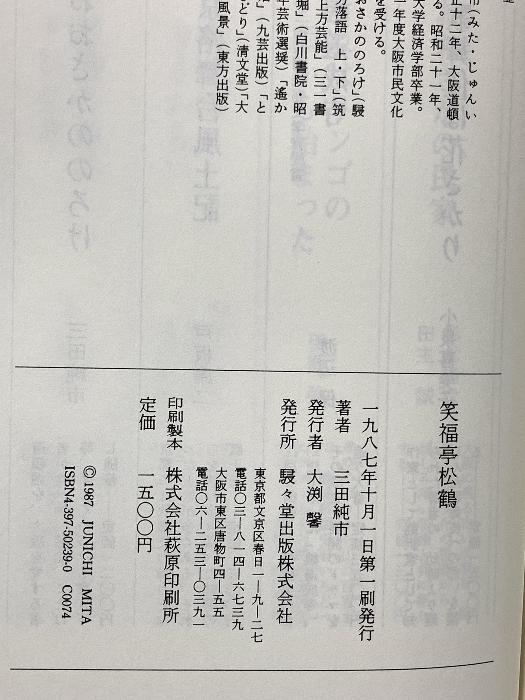 市（みた・じゅんい
正十二年、大阪道頓
る。昭和二十一年、
大学経済学部卒業。
一年度大阪市民文化
を受ける。
おさかののろけ」（駸
方落語　上・下」（筑
上方芸能」（三一書
堀」（白川書院・昭
年芸術選奨）「遙か
」（九芸出版）「と
どり」（清文堂）「大
風景」（東方出版）
笑福亭松鶴
一九八七年十月一日第一刷発行
著者　三田純市
発行者　大渕　馨
発行所　駸々堂出版株式会社
東京都文京区春日一―九―二七
電話〇三―八一四―六七三九
大阪市東区唐物町四―五五
電話〇六―二五三―〇三九一
印刷製本　株式会社萩原印刷所
定価　一五〇〇円
©1987 JUNICHI MITA
ISBN4-397-50239-0 C0074